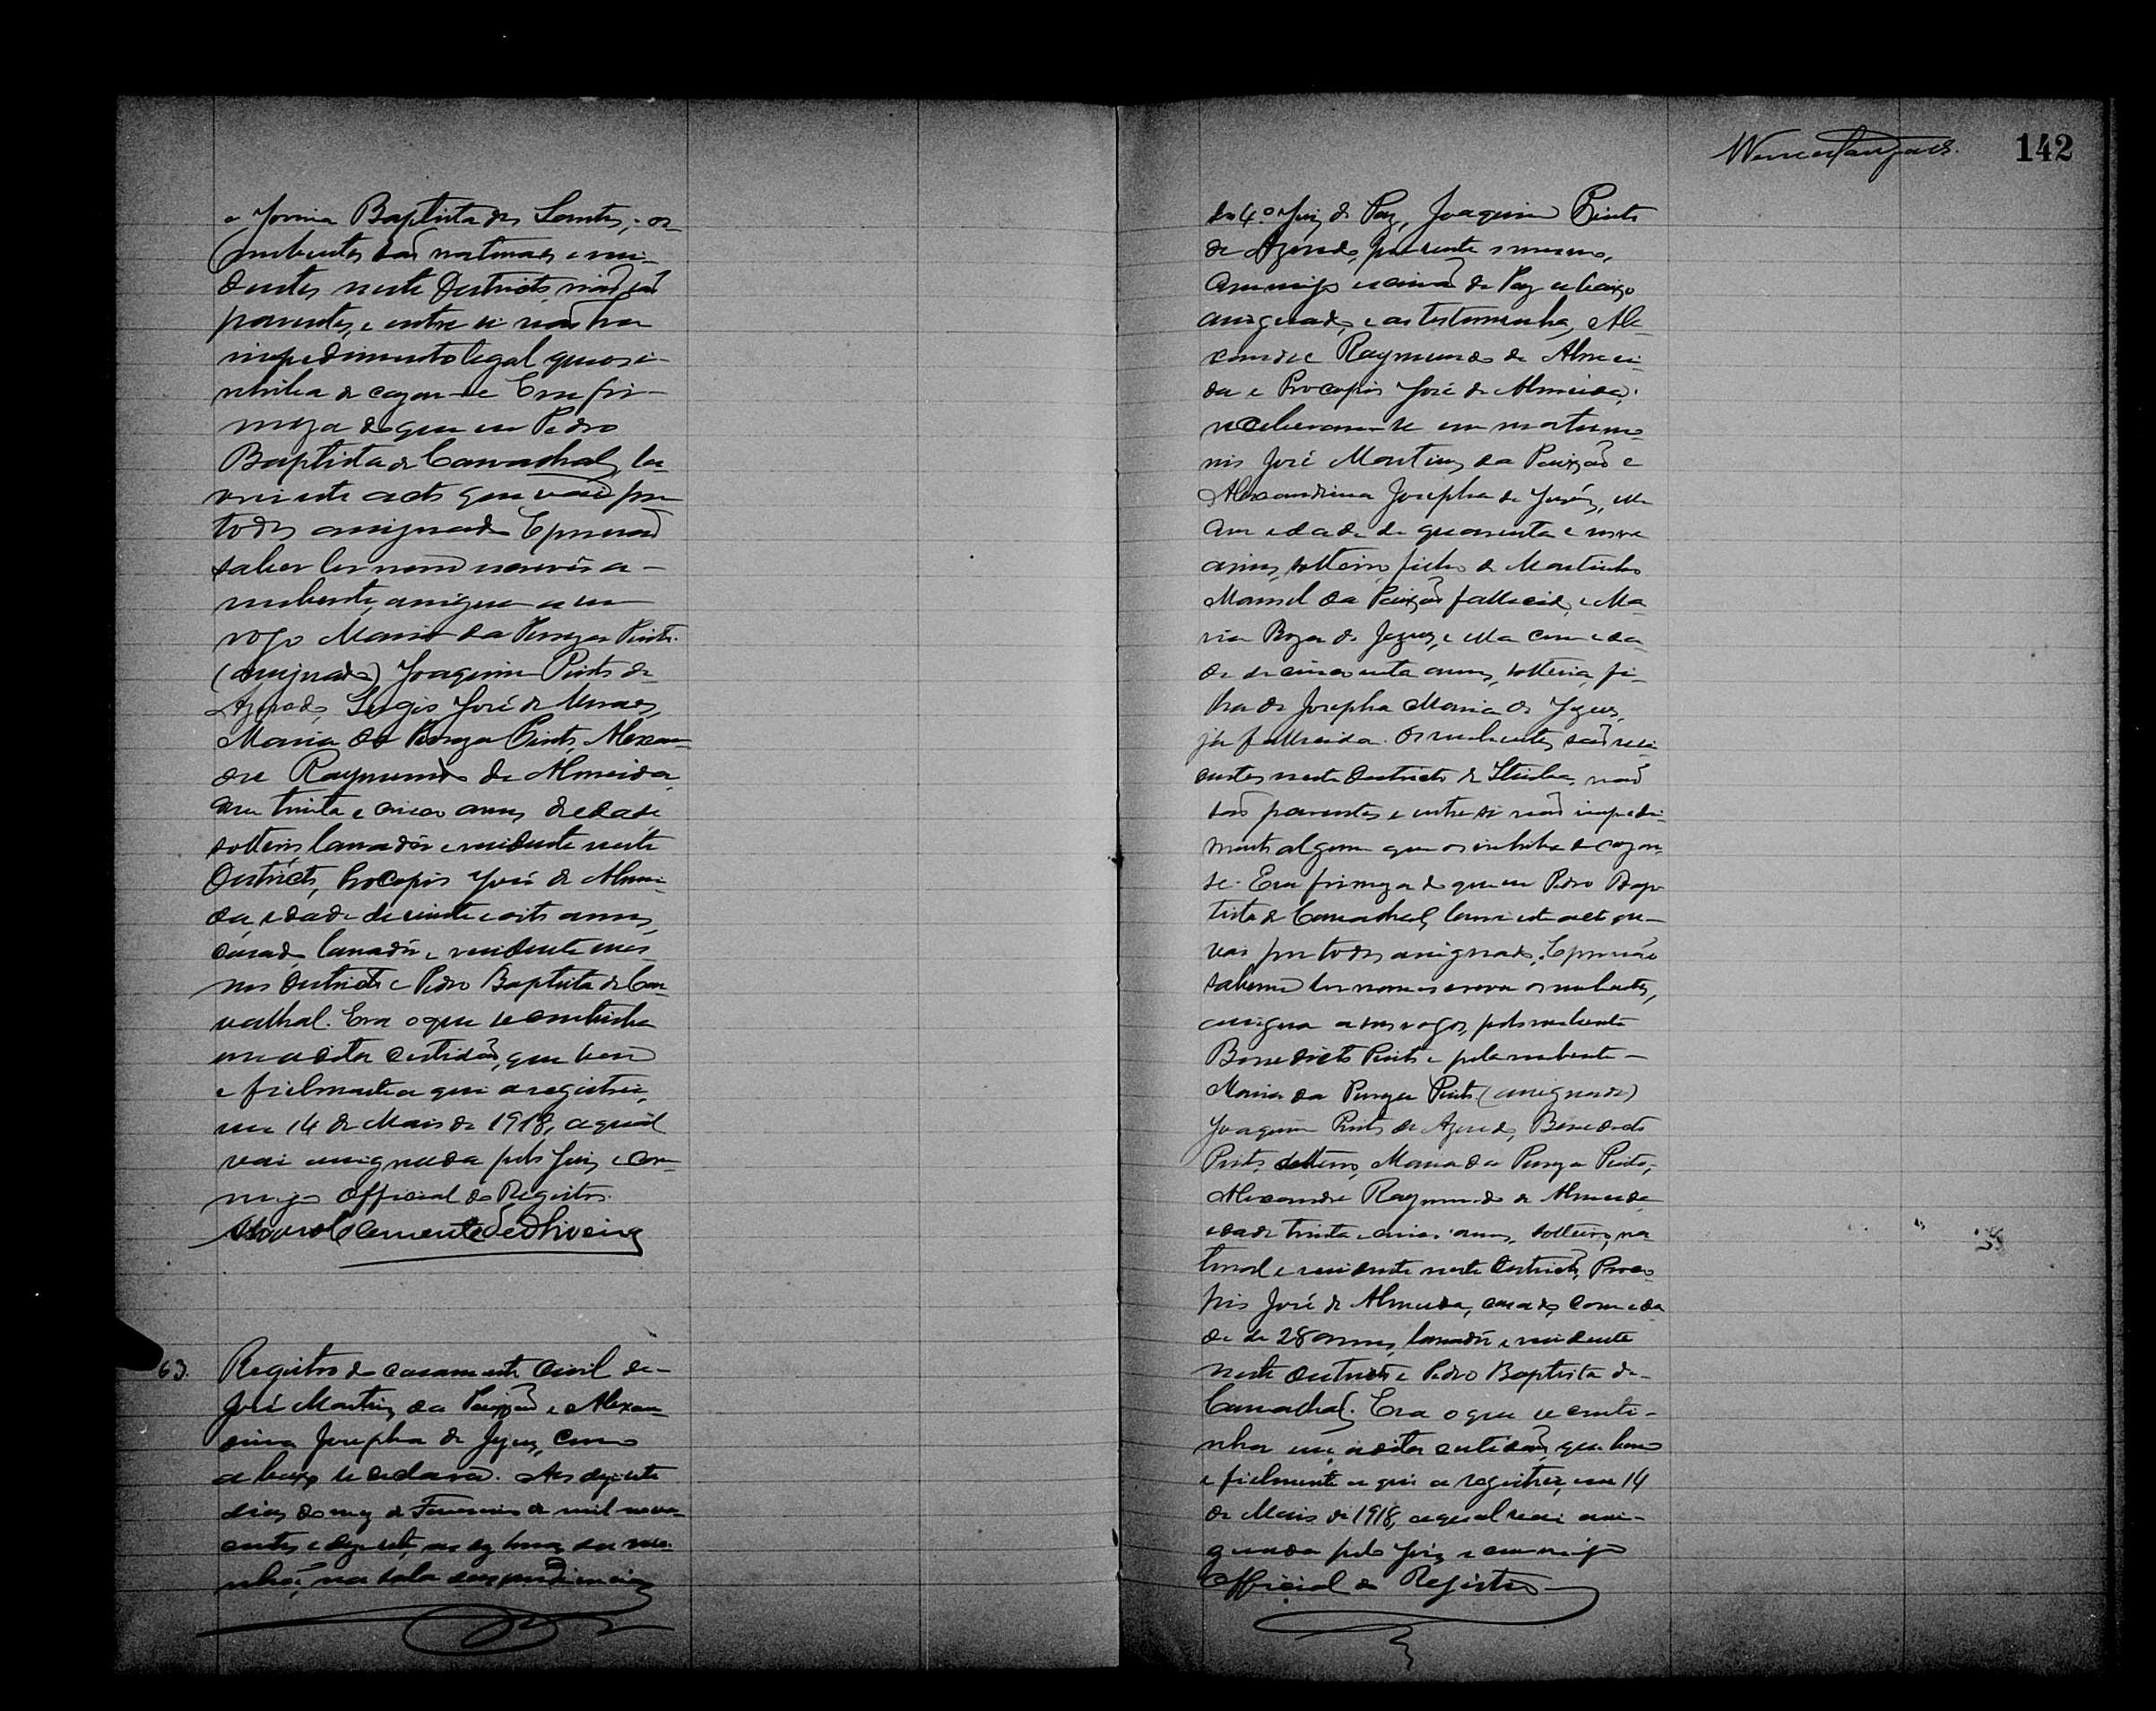 e Jovina Baptista dos Santos; os
nubentes são naturaes e resi-
dentes neste Districto, não são
parentes, e entre si não ha
impedimento legal que os i-
nhiba de cazar-se E em fir-
meza do que eu Pedro
Baptista de Carvalhal, la-
vrei este acto que vai por
todos assignado E por não
saber ler nem escrever a
nubente, assigna a seu
rogo Maria da Pureza Pinto.
(assignado) Joaquim Pinto de
Azevedo, Sergio José de Moraes,
Maria da Pureza Pinto, Alexan-
dre Raymundo de Almeida
com trinta e cinco annos de edade
solteiro, lavrador e residente neste
Districto, Procopio José de Almei-
da, edade de vinte e oito annos,
casado, lavrador e residente nes
nes Districto e Pedro Baptista de Car-
valhal. Era o que se continha
em a dita certidão, que bem
e fielmente a qui a registrei,
em 14 de Maio de 1918, a qual
vai assignada pelo Juiz e com-
migo Official do Registro.
Clemente de Oliveira
63. Registro do casamento Civil de
José Martins da Paixão e Alexan-
drina Josepha de Jezus, como
a baixo se declara. Aos dezesete
dias do mez de Fevereiro de mil nove-
centos e dezesete, as dez horas da ma-
nhã, na sala das audiencias
142
do 4º Juiz de Paz, Joaquim Pinto
de Azevedo, presente o mesmo,
commigo escrivão de Paz abaixo
assignado, e as testemunhas, Ale-
xandre Raymundo de Almei-
da e Procopio José de Almeida;
receberam-se em matrimo-
nio José Martins da Paixão e
Alexandrina Josepha de Jesús, elle
com edade de quarenta e nove
annos, solteiro, filho de Martinho
Manoel da Paixão fallecido, e Ma
ria Roza de Jezus, e ella com eda
de de cincoenta annos, solteira, fi-
lha de Josepha Maria de Jezus,
já fallecida. Os nubentes são resi
dentes neste Districto de não
são parentes e entre si não impedi-
mento algum que os inhiba de cazar-
se. E em firmeza do que eu Pedro Bap-
tista de Carvalhal, lavrei este acto que
vai por todos assignado. E por não
saberem ler nem escrever os nubentes,
assigna a seus rogos, pelo nubente
Benedicto Pinto e pela nubente
Maria da Pureza Pinto (assignado)
Joaquim Pinto de Azevedo, Benedicto
Pinto, solteiro, Maria da Pureza Pinto,
Alexandre Raymundo de Almeida
edade trinta e cinco annos, solteiro, na
tural e residente neste Districto, Proco
pio José de Almeida, casado, com eda
de de 28 annos, lavrador e residente
neste Districto e Pedro Baptista de
Carvalhal. Era o que se conti-
nha em a dita certidão, que bem
e fielmente a qui a registrei, em 14
de Maio de 1918, a qual vai assi-
gnada pelo Juiz e commigo
Official do Registro